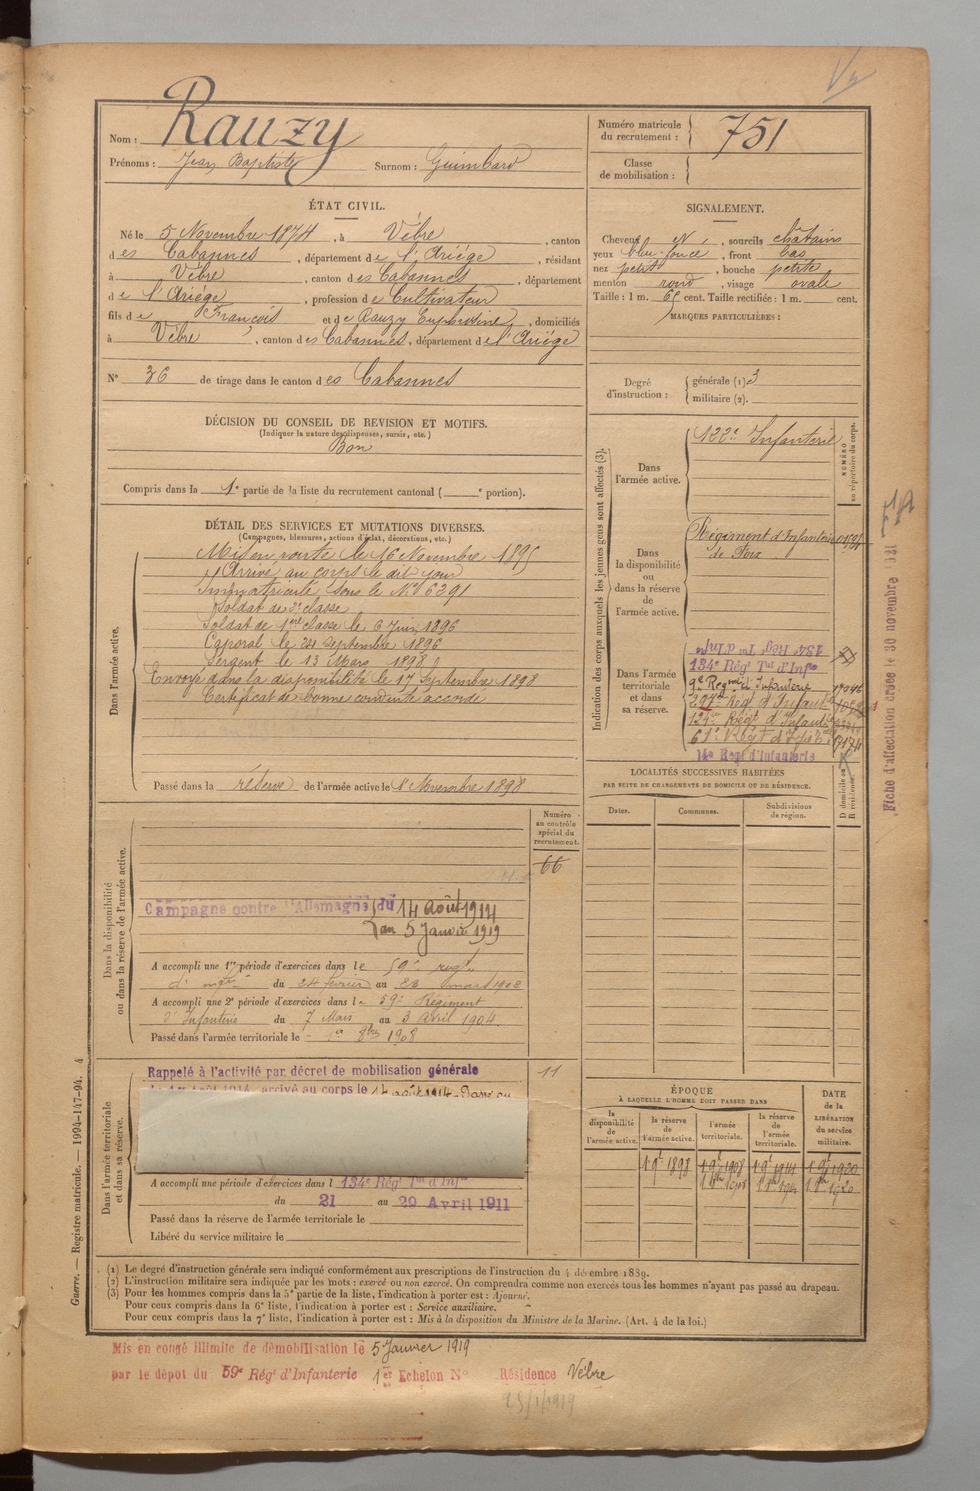 Nom : Rauzy
Prénoms : Jean Baptiste Surnom : Guimbard
Numéro matricule du recrutement : 751
Classe de mobilisation :
ÉTAT CIVIL.
Né le 5 Novembre 1874, à Vèbre, canton
des Cabannes, département de l'Ariége, résidant
à Vèbre, canton des Cabannes, département
de l'Ariége, profession de Cultivateur
fils de François et de Rauzy Euphrosine, domiciliés
à Vèbre, canton des Cabannes, département de l'Ariége
N° 36 de tirage dans le canton des Cabannes
SIGNALEMENT.
Cheveux N, sourcils châtains
yeux bleu foncé, front bas
nez petit, bouche petite
menton rond, visage ovale
Taille : 1 m. 65 cent. Taille rectifiée : 1 m. cent.
MARQUES PARTICULIÈRES :
Degré d'instruction : générale (1). 3
militaire (2).
DÉCISION DU CONSEIL DE REVISION ET MOTIFS.
(Indiquer la nature des dispenses, sursis, etc.)
Bon
Compris dans la 1e partie de la liste du recrutement cantonal ( e portion).
DÉTAIL DES SERVICES ET MUTATIONS DIVERSES.
(Campagnes, blessures, actions d'éclat, décorations, etc.)
Dans l'armée active.
Mis en route le 16 Novembre 1895
Arrivé au corps le dit jour
Immatriculé sous le N° 6291
Soldat de 2e classe
Soldat de 1ère classe le 6 Juin 1896
Caporal le 24 Septembre 1896
Sergent le 13 Mars 1898
Envoyé dans la disponibilité le 17 Septembre 1898
Certificat de bonne conduite accordé
Passé dans la réserve de l'armée active le 1er Novembre 1898
Indication des corps auxquels les jeunes gens sont affectés (3).
NUMÉRO au répertoire du corps.
Dans l'armée active.
122e Infanterie
Dans la disponibilité ou dans la réserve de l'armée active.
Régiment d'Infanterie
de Foix
Dans l'armée territoriale et dans sa réserve.
134 Rég Ter d'Infie
134e Régt Tal d'Infie
9e Regment d'Infanterie
Régt d'Infant
Régt d'Infant
61e Régt d'Infie
14e Reg d'Infanterie
Fiche d'affectation créée le 30 novembre
LOCALITÉS SUCCESSIVES HABITÉES
PAR SUITE DE CHANGEMENTS DE DOMICILE OU DE RÉSIDENCE.
Dates. Communes. Subdivisions de région. D domicile ou R résidence.
Dans la disponibilité ou dans la réserve de l'armée active.
Numéro au contrôle spécial du recrutement.
66
Campagne contre l'Allemagne du 14 Août 1914
au 5 Janvier 1919
A accompli une 1re période d'exercices dans le 59e regt
d'infie du 24 février au 23 mars 1902
A accompli une 2e période d'exercices dans le 59e Régiment
d'Infanterie du 7 Mars au 3 Avril 1904
Passé dans l'armée territoriale le 1er 8bre 1908
Dans l'armée territoriale et dans sa réserve.
Rappelé à l'activité par décret de mobilisation générale
11
arrivé au corps le 14 août 1914
A accompli une période d'exercices dans l 134e Régt Tal d'Infie
du 21 au 29 Avril 1911
Passé dans la réserve de l'armée territoriale le
Libéré du service militaire le
ÉPOQUE
À LAQUELLE L'HOMME DOIT PASSER DANS
la disponibilité de l'armée active. la réserve de l'armée active. l'armée territoriale. la réserve de l'armée territoriale.
DATE de la LIBÉRATION du service militaire.
1 9e 1898 1 9e 1908 1 9e 1914 1 9e 1920
(1) Le degré d'instruction générale sera indiqué conformément aux prescriptions de l'instruction du 4 décembre 1889.
(2) L'instruction militaire sera indiquée par les mots : exercé ou non exercé. On comprendra comme non exercés tous les hommes n'ayant pas passé au drapeau.
(3) Pour les hommes compris dans la 5e partie de la liste, l'indication à porter est : Ajourné.
Pour ceux compris dans la 6e liste, l'indication à porter est : Service auxiliaire.
Pour ceux compris dans la 7e liste, l'indication à porter est : Mis à la disposition du Ministre de la Marine. (Art. 4 de la loi.)
Guerre. — Registre matricule. — 1994-147-94. 4
Mis en congé illimité de démobilisation le 5 Janvier 1919
par le dépôt du 59e Régt d'Infanterie 1er Echelon N° Résidence Vèbre
25/1/1919